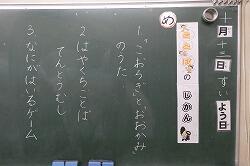 十月十二日すいよう日
め
ことばのじかん
1、「こおろぎ」と「おおかみ」のうた
2、はやくちことば
てんとうむし
3、なにがはいるゲーム